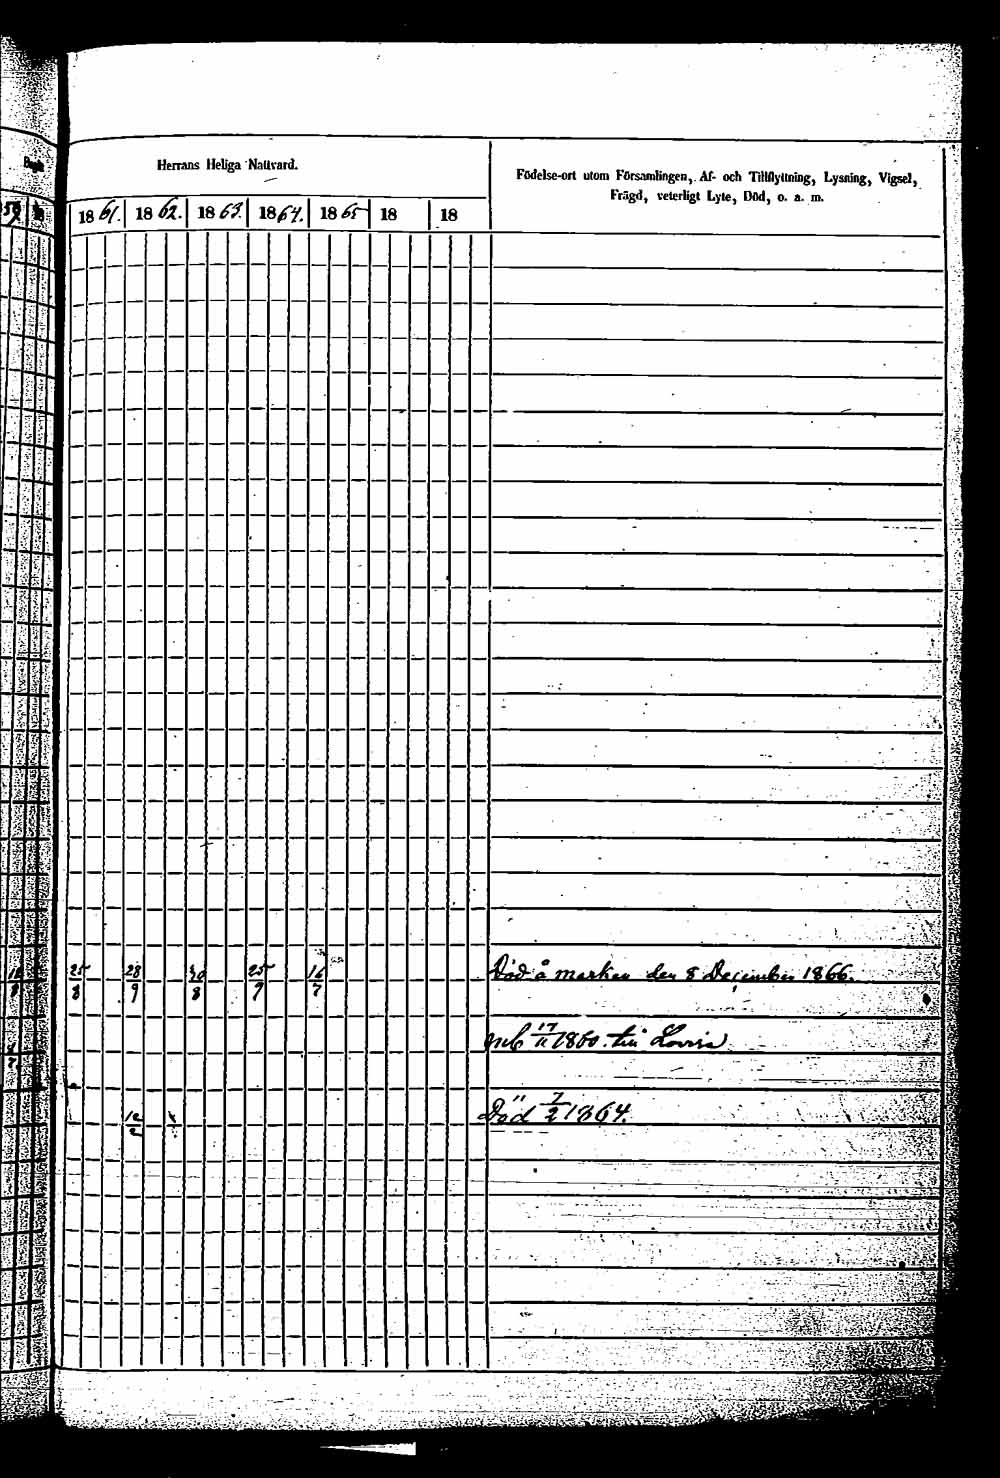 Herrans Heliga Nattvard.
Födelse-ort utom Församlingen, Af- och Tillflyttning, Lysning, Vigsel,
Frägd, veterligt Lyte, Död, o. a. m.
59
1861. 1862. 1863. 1864. 1865 18 18
25/8 28/9 30/8 25/9 16/7 Död å marken den 8 December 1866.
17/11 1860. till Lovisa
12/2 Död 7/2 1864.